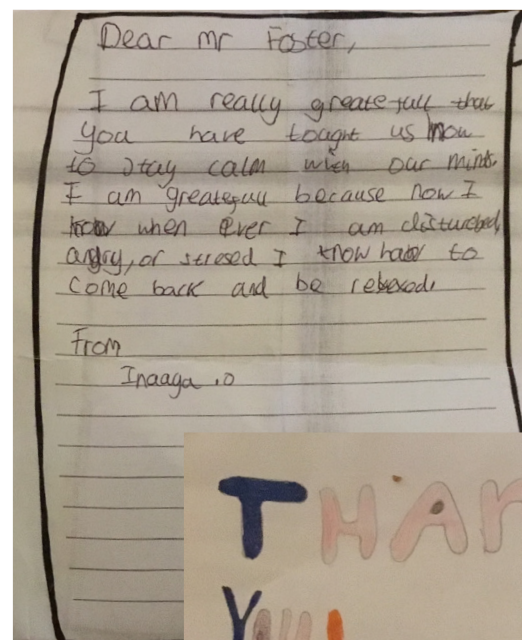 Dear Mr Foster,
I am really greatefull that
you have tought us how
to stay calm with our minds.
I am greatefull because now I
know when ever I am disturbed,
angry, or stresed I know how to
come back and be relexed.
From
Inaaga .O
THAN
YOU